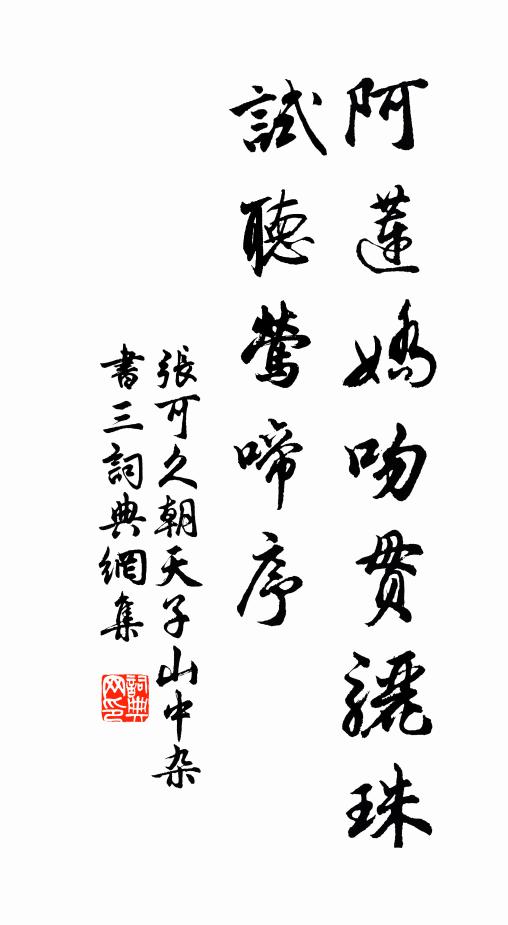 阿蓮嬌吻貫驪珠
試聽鶯啼序
張可久朝天子山中杂
書三詞典網集
詞典網印